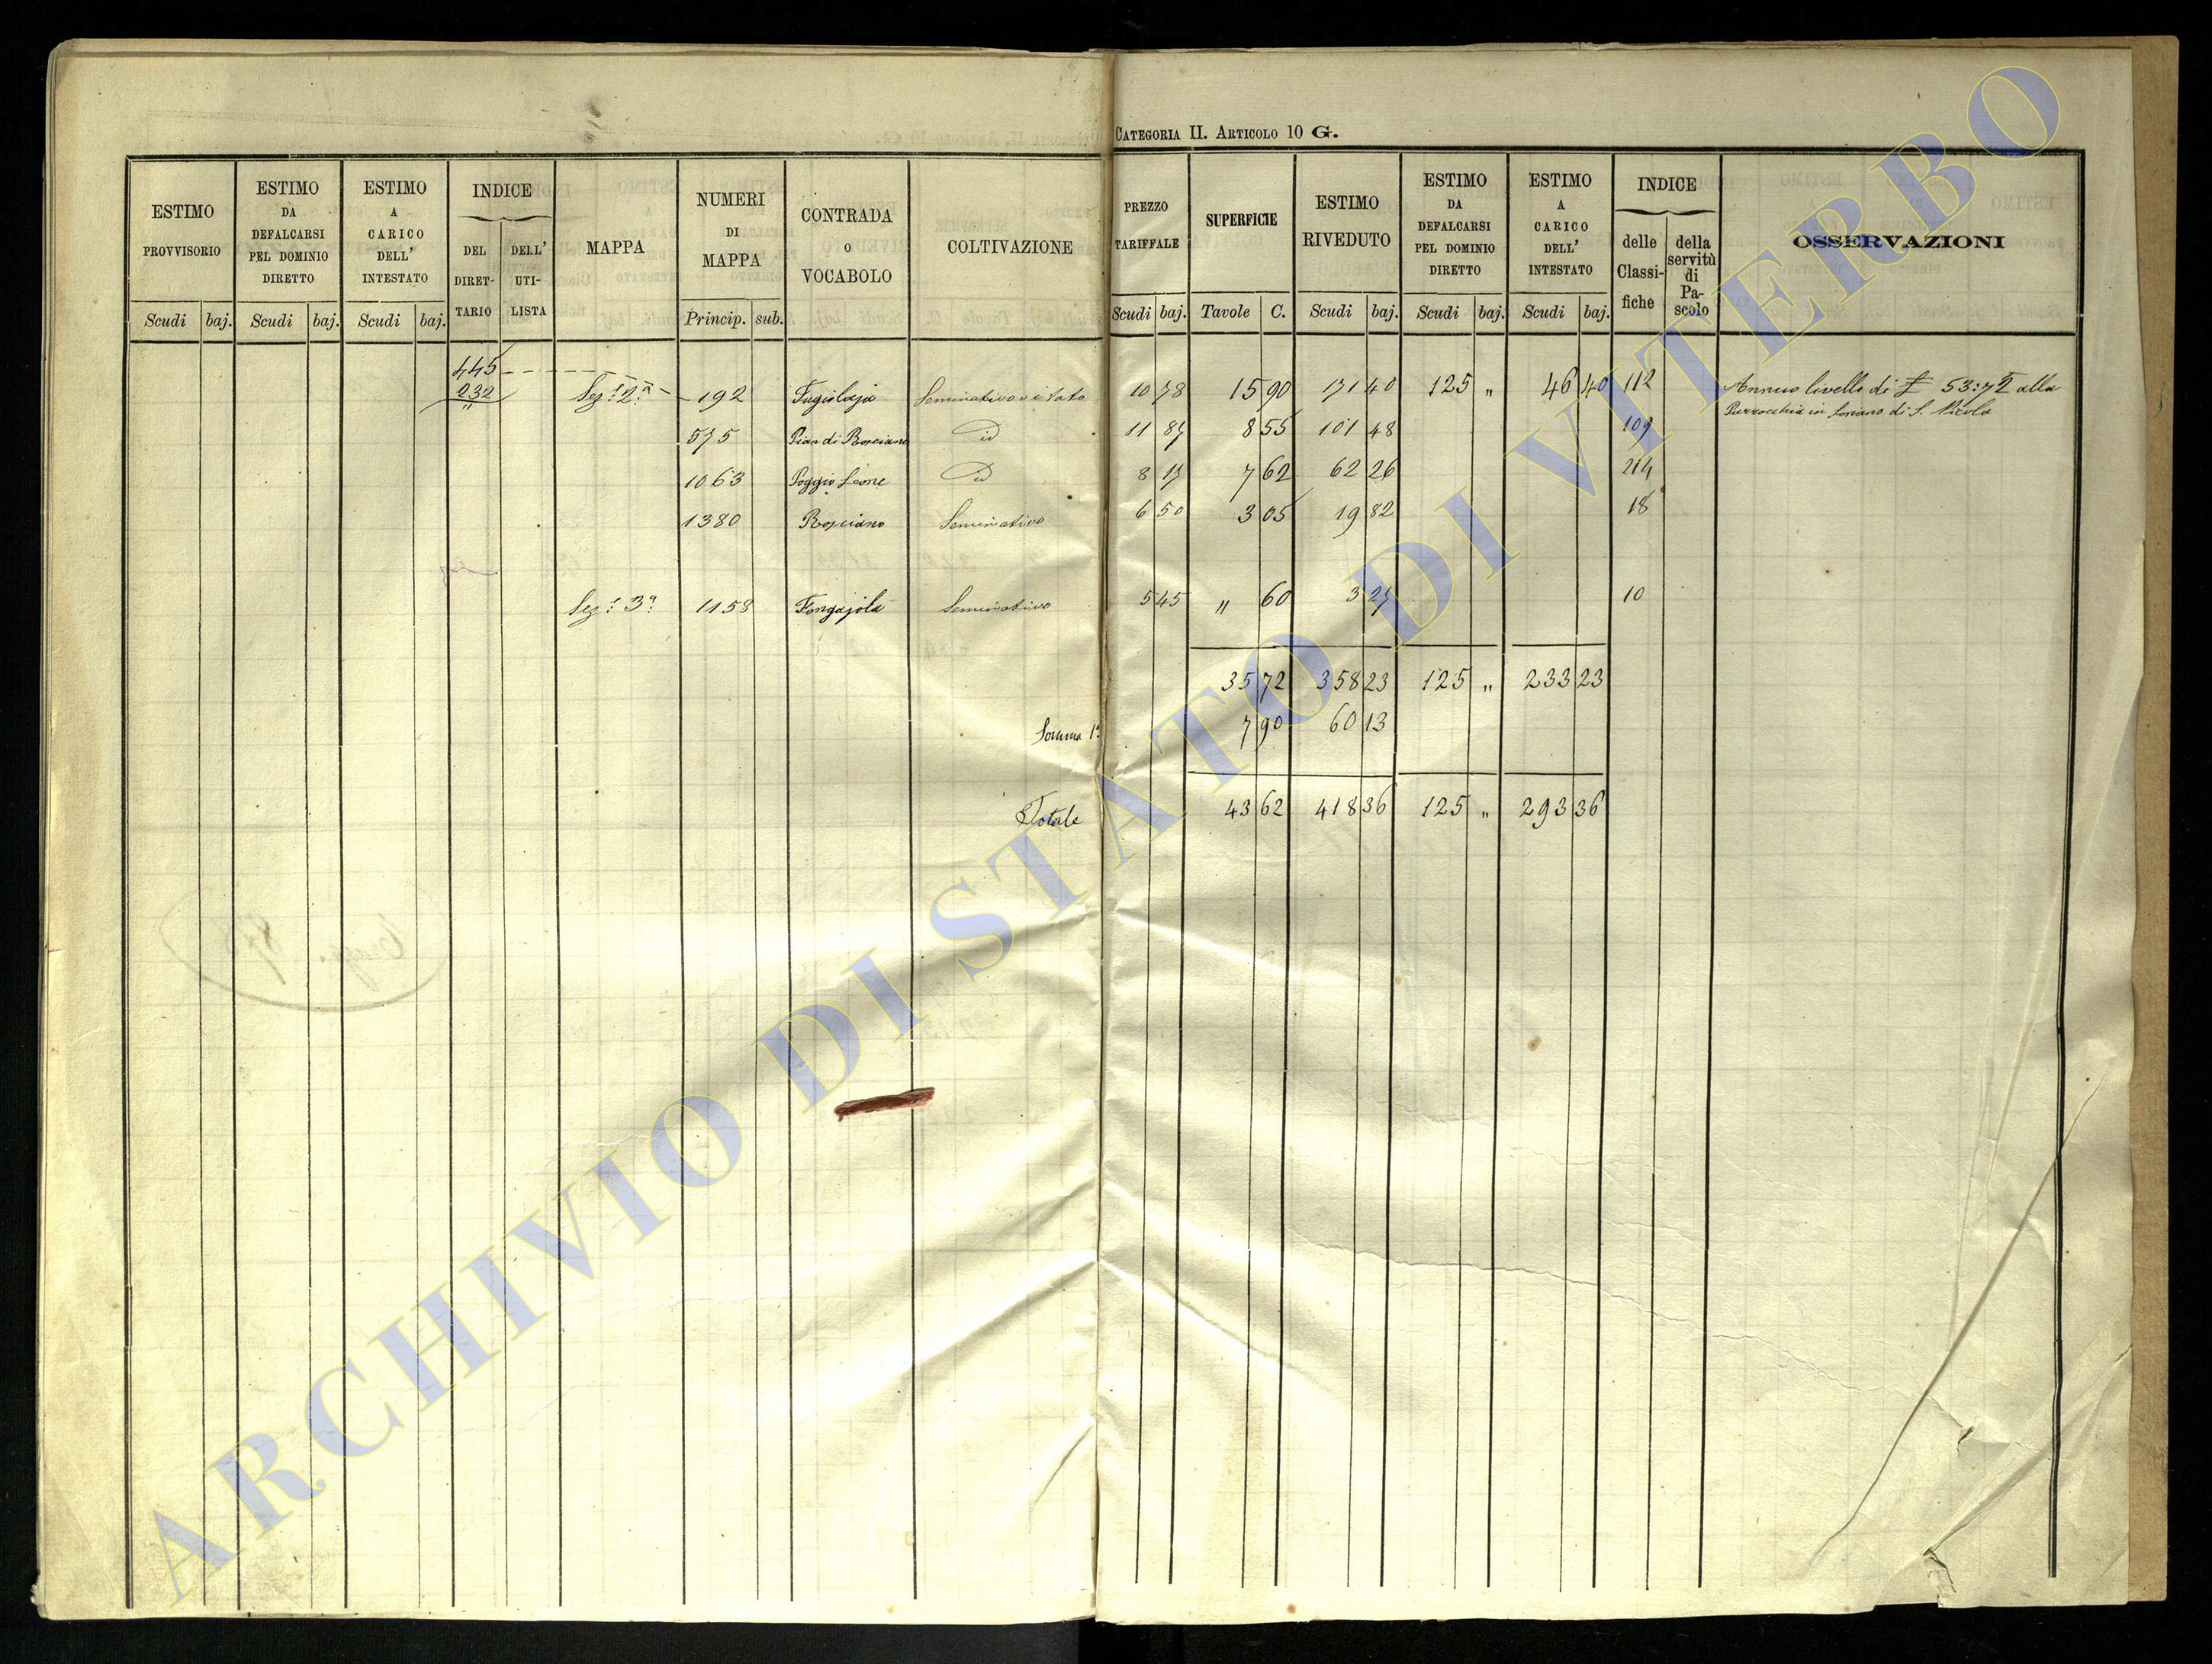 CATEGORIA II. ARTICOLO 10 G.
ESTIMO PROVVISORIO
Scudi baj.
ESTIMO DA DEFALCARSI PEL DOMINIO DIRETTO
Scudi baj.
ESTIMO A CARICO DELL' INTESTATO
Scudi baj.
INDICE
DEL DIRET-TARIO
DELL' UTI-LISTA
MAPPA
NUMERI DI MAPPA
Princip. sub.
CONTRADA O VOCABOLO
COLTIVAZIONE
PREZZO TARIFFALE
Scudi baj.
SUPERFICIE
Tavole C.
ESTIMO RIVEDUTO
Scudi baj.
ESTIMO DA DEFALCARSI PEL DOMINIO DIRETTO
Scudi baj.
ESTIMO A CARICO DELL' INTESTATO
Scudi baj.
INDICE
delle Classi-fiche
della servitù di Pa-scolo
OSSERVAZIONI
445
232 Sez.e 2.a 192 Seminativo vitato 10 78 15 90 171 40 125 " 46 40 112 Annuo livello di £ 53:72 alla
Parrocchia in Soriano di S. Nicola
575 Pian di Rosciano id 11 87 8 55 101 48 109
1063 Poggio Leone id 8 17 7 62 62 26 214
1380 Rosciano Seminativo 6 50 3 05 19 82 18
Sez.e 3.a 1158 Fongajola Seminativo 5 45 " 60 3 27 10
35 72 358 23 125 " 233 23
Somma 1a 7 90 60 13
Totale 43 62 418 36 125 " 293 36
ARCHIVIO DI STATO DI VITERBO